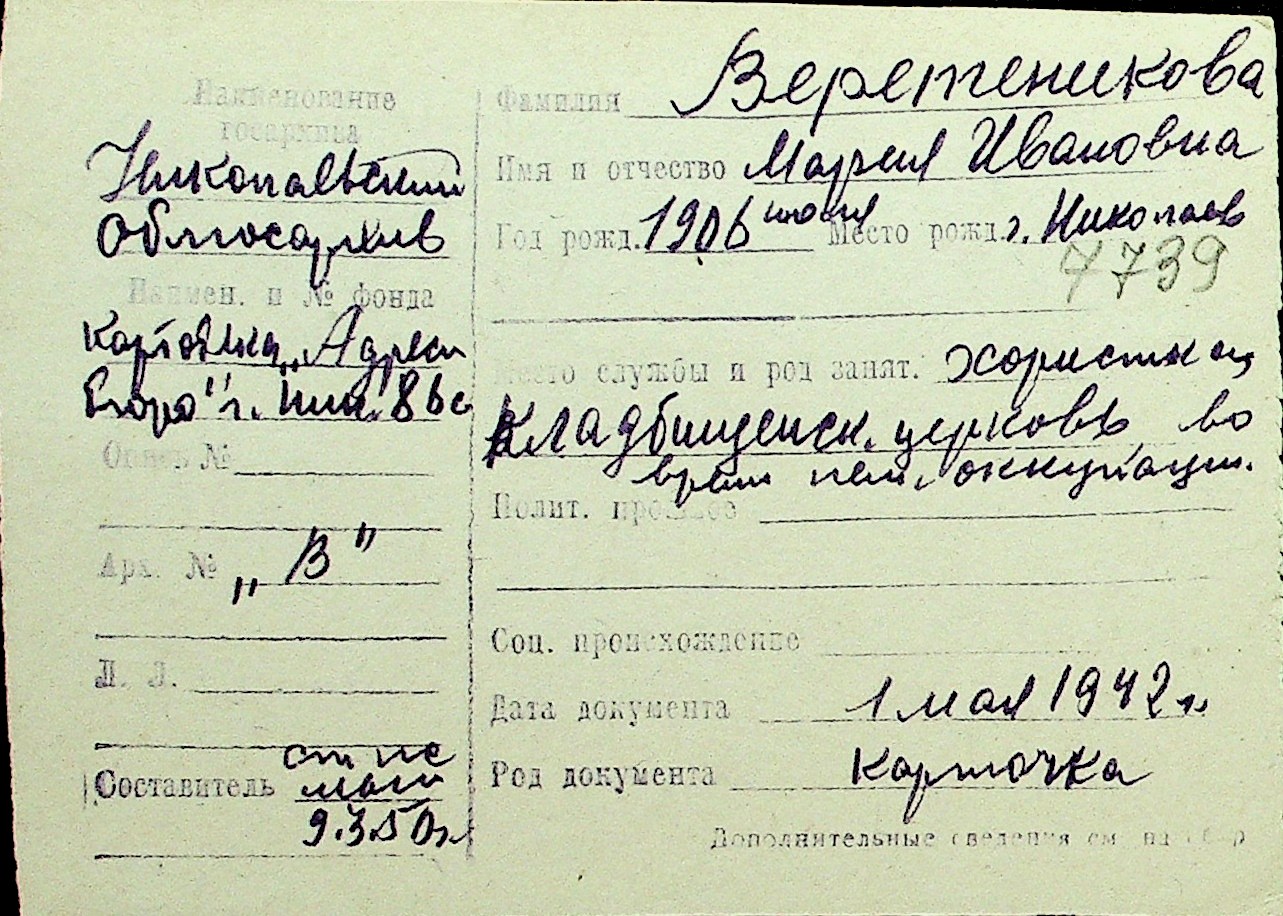 Наименование
госархива
Николаевский
Облгосархив
Наимен. и № фонда
Картотека „Адресн
бюро" г. Ник.
Опись №
Арх. № „В"
Л. Л.
Составитель
9.3.50г
Фамилия Веретеникова
Имя и отчество Мария Ивановна
Год рожд. 1906 Место рожд. г. Николаев
7739
Место службы и род занят. хористка
Кладбищенск. церковь во
время нем. оккупации.
Полит. прошлое
Соц. происхождение
Дата документа 1 мая 1942 г.
Род документа карточка
Дополнительные сведения см. на обор